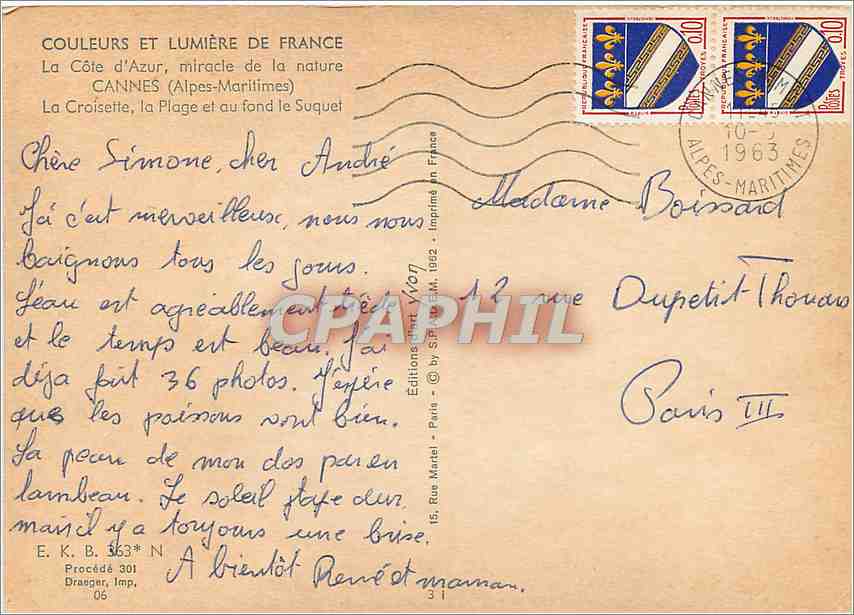 COULEURS ET LUMIÈRE DE FRANCE
La Côte d'Azur, miracle de la nature
CANNES (Alpes-Maritimes)
La Croisette, la Plage et au fond le Suquet
Chère Simone, cher André
Ici c'est merveilleux, nous nous
baignons tous les jours.
L'eau est agréablement tiède
et le temps est beau. J'ai
déja fait 36 photos. J'espère
que les poissons vont bien.
La peau de mon dos par en
lambeau. Le soleil tape dur
mais il y a toujours une brise.
A bientôt René et maman.
E. K. B. 363* N
Procédé 301
Draeger, Imp.
06
3 I
15, Rue Martel - Paris - © by S.P.A.D.E.M. 1962 - Imprimé en France
Éditions d'art Yvon
REPUBLIQUE FRANÇAISE
0,10
TROYES
POSTES
REPUBLIQUE FRANÇAISE
0,10
TROYES
POSTES
10-
1963
ALPES-MARITIMES
Madame Boissard
12 rue Dupetit-Thouars
Paris III
CPAPHIL